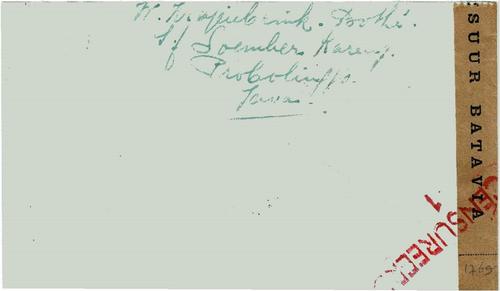 S/f Soember Kareng.
Probolinggo.
Java.
SUUR BATAVIA
CENSUREER
1
1769